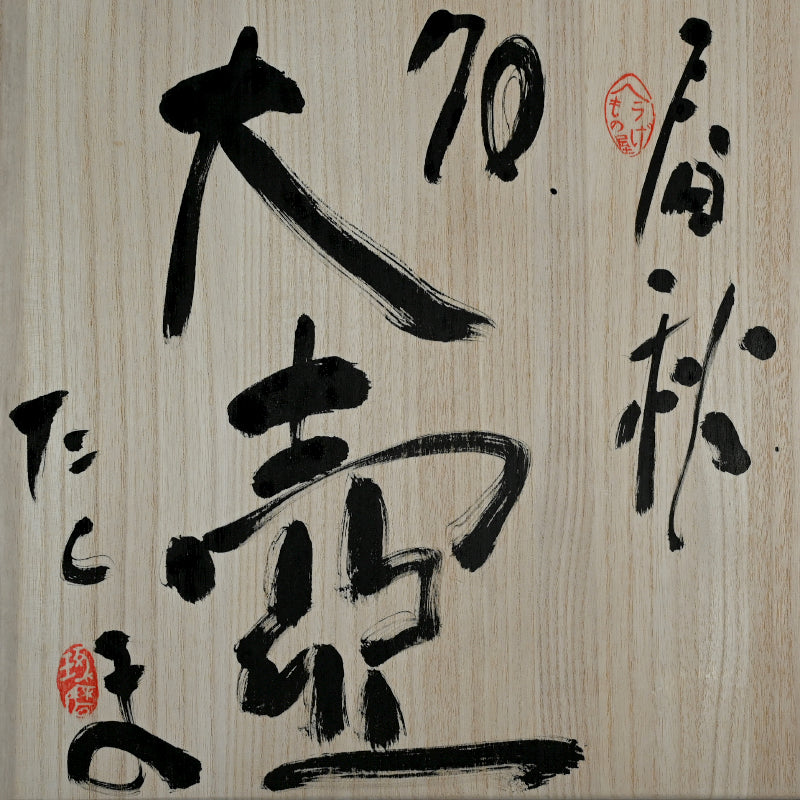 秋
へうげ
もの屋
70.
大壷
たくま
琢磨